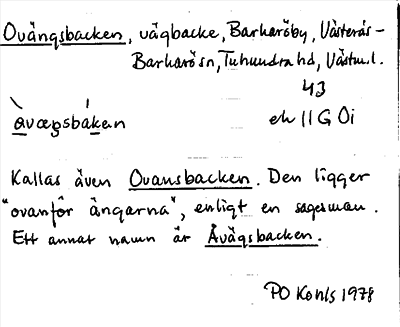 Ovängsbacken, vägbacke, Barkaröby, Västerås-
Barkarö sn, Tuhundra hd, Västml.
43
àvœgsbákan ek 11 G 0i
Kallas även Ovansbacken. Den ligger
"ovanför ängarna", enligt en sagesman.
Ett annat namn är Åvägsbacken.
PO Kohls 1978